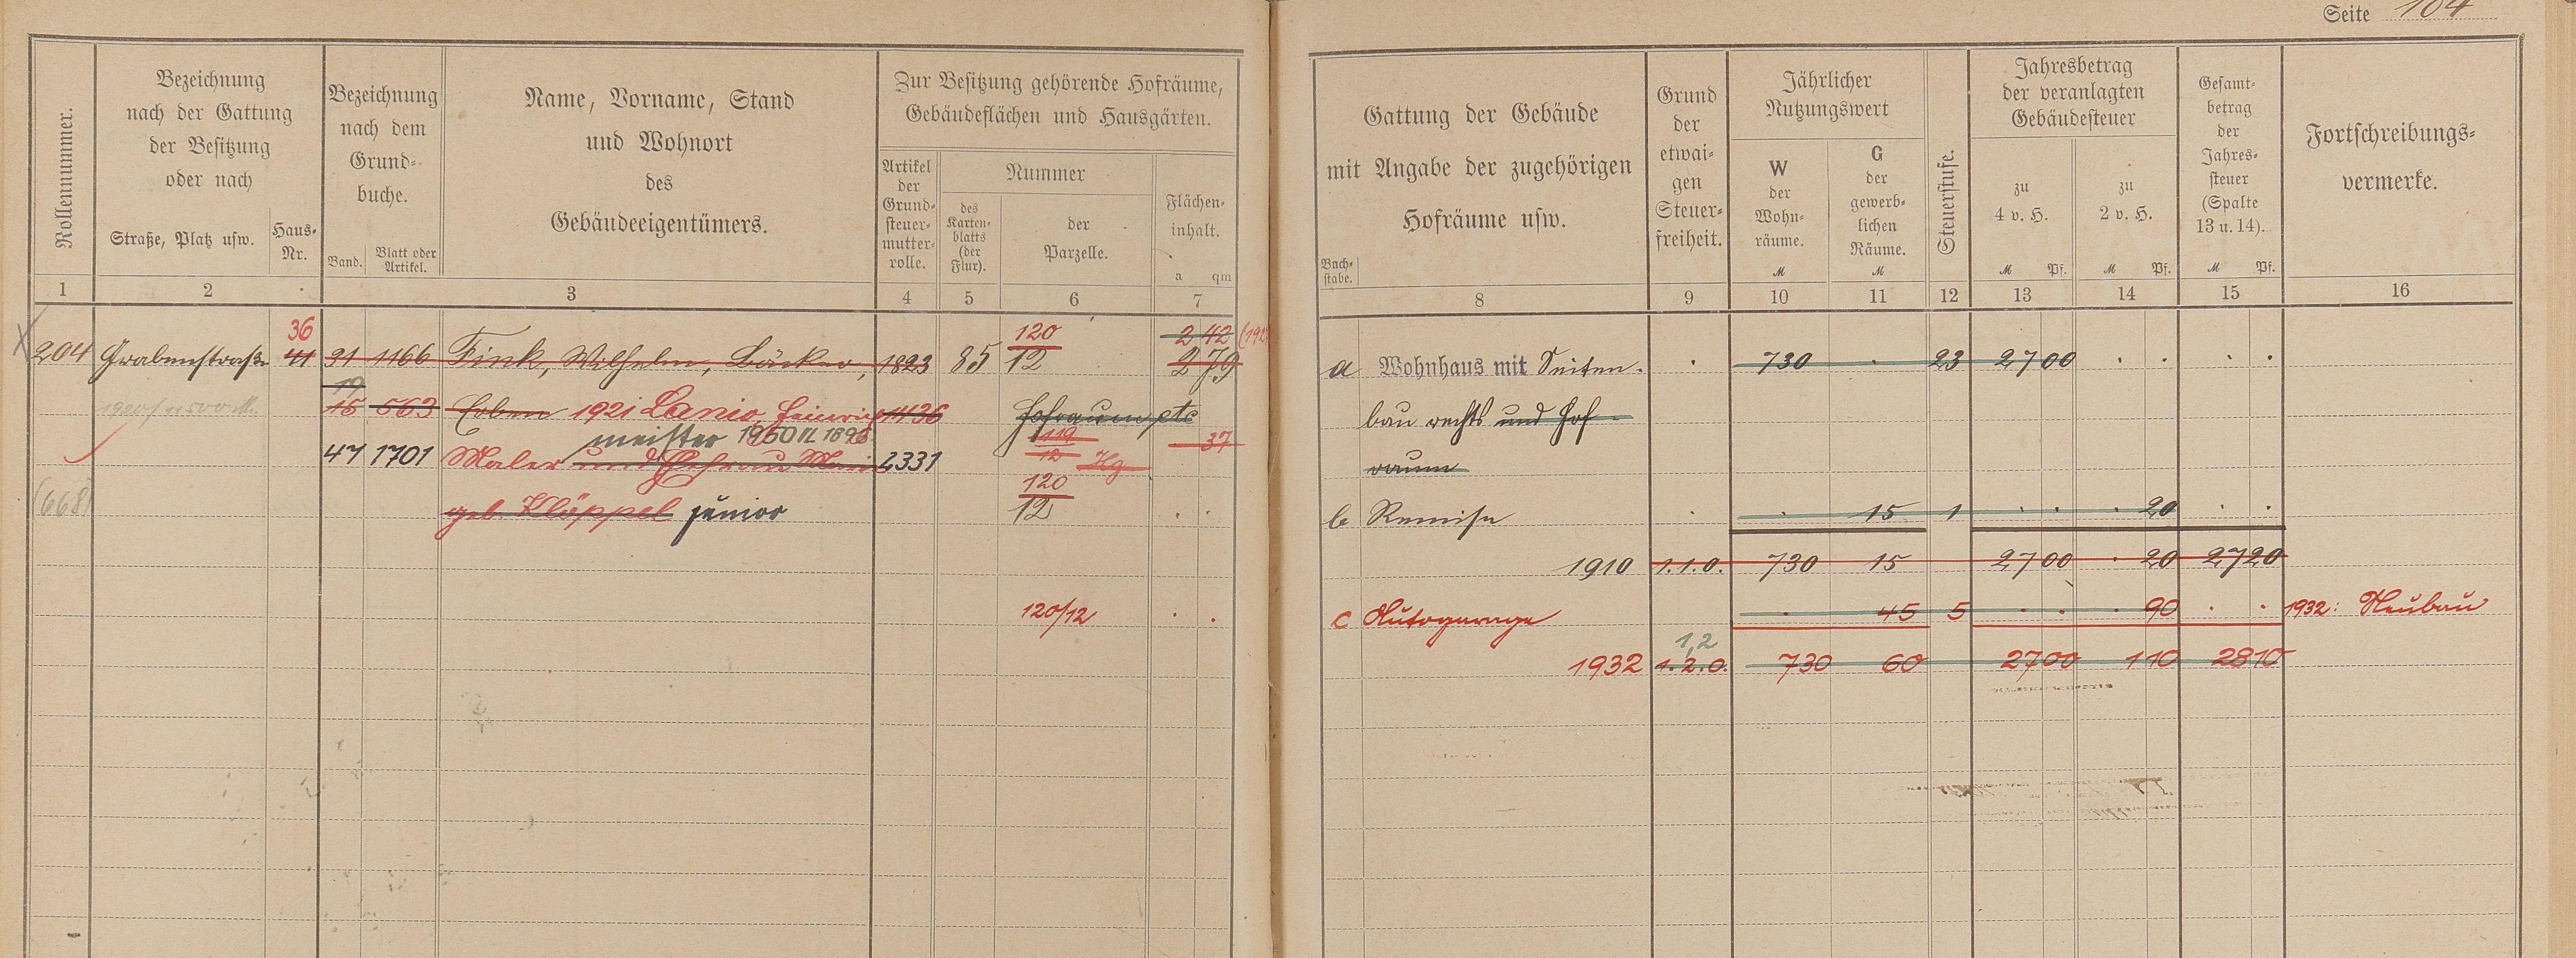 Seite 104
Rollennummer.
Bezeichnung
nach der Gattung
der Besitzung
oder nach
Straße, Platz usw.
Haus-
Nr.
Bezeichnung
nach dem
Grund-
buche.
Band.
Blatt oder
Artikel.
Name, Vorname, Stand
und Wohnort
des
Gebäudeeigentümers.
Zur Besitzung gehörende Hofräume,
Gebäudeflächen und Hausgärten.
Artikel
der
Grund-
steuer-
mutter-
rolle.
Nummer
des
Karten-
blatts
(der
Flur).
der
Parzelle.
Flächen-
inhalt.
a qm
Gattung der Gebäude
mit Angabe der zugehörigen
Hofräume usw.
Buch-
stabe.
Grund
der
etwai-
gen
Steuer-
freiheit.
Jährlicher
Nutzungswert
W
der
Wohn-
räume.
M
G
der
gewerb-
lichen
Räume.
M
Steuerstufe.
Jahresbetrag
der veranlagten
Gebäudesteuer
zu
4 v. H.
M Pf.
zu
2 v. H.
M Pf.
Gesamt-
betrag
der
Jahres-
steuer
(Spalte
13 u. 14).
M Pf.
Fortschreibungs-
vermerke.
1 2 3 4 5 6 7 8 9 10 11 12 13 14 15 16
36 120 2 42
204 Grabenstraße 41 31 1166 Fink, Wilhelm, Bäcker, 1823 85 12 2 79
19
15 563 Erben 1921 Lanio, Heinrich 1436 Hofraum etc
meister 119 37
47 1701 Maler und Ehefrau 2331 12 Hg
120
(668) geb. Klöppel junior 12
a Wohnhaus mit Seiten- 730 23 27 00
bau rechts und Hof-
raum
b Remise 15 1 20
1910 1.1.0. 730 15 27 00 20 27 20
120/12 c Autogarage 45 5 90 1932: Neubau
1,2
1932 1.2.0. 730 60 27 00 1 10 28 10